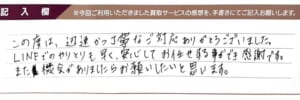 記入欄 ※今回ご利用いただきました買取サービスの感想を、手書きにてご記入お願いします。
この度は、迅速かつ丁寧なご対応ありがとうございました。
LINEでのやりとりも早く、安心してお任せする事ができ感謝です。
また機会がありましたらお願いしたいと思います。